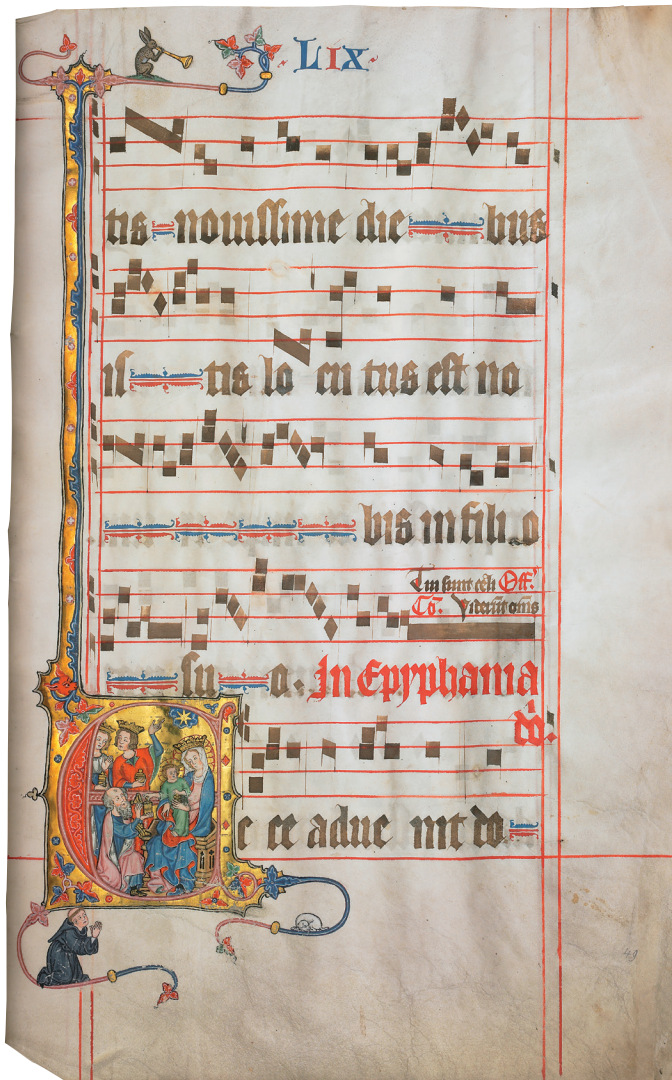 ·LIX·
tis nouissime die bus
is tis lo cu tus est no
bis in fili o
Tui sunt celi Off.
Co. Viderūt om̄s
su o. In Epyphania
E c ce adue nit do
49